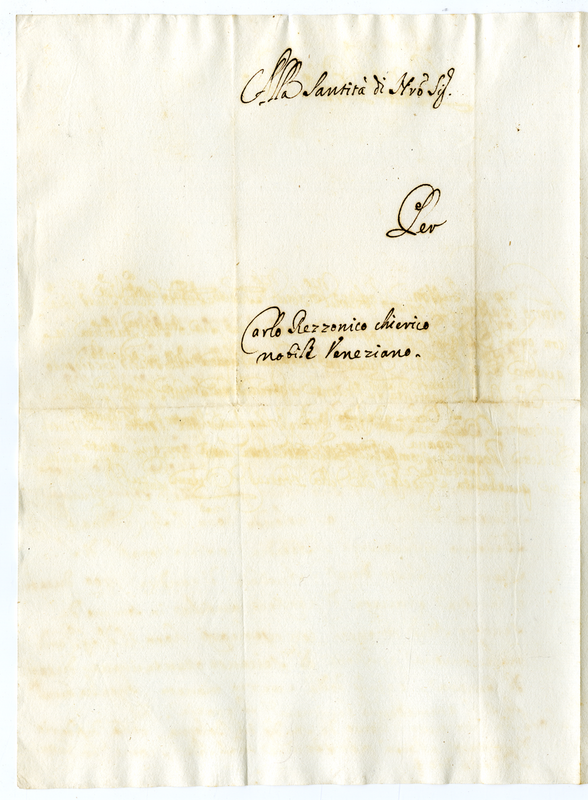 Alla Santità di Nrõ Sig.
Per
Carlo Rezzonico chierico
nobile Veneziano.